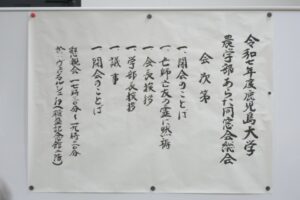 令和七年度鹿児島大学
農学部あらた同窓会総会
会次第
一、開会のことば
一、亡師亡友の霊に黙祷
一、会長挨拶
一、学部長挨拶
一、議事
一、閉会のことば
懇親会 一七時三〇分～一九時三〇分